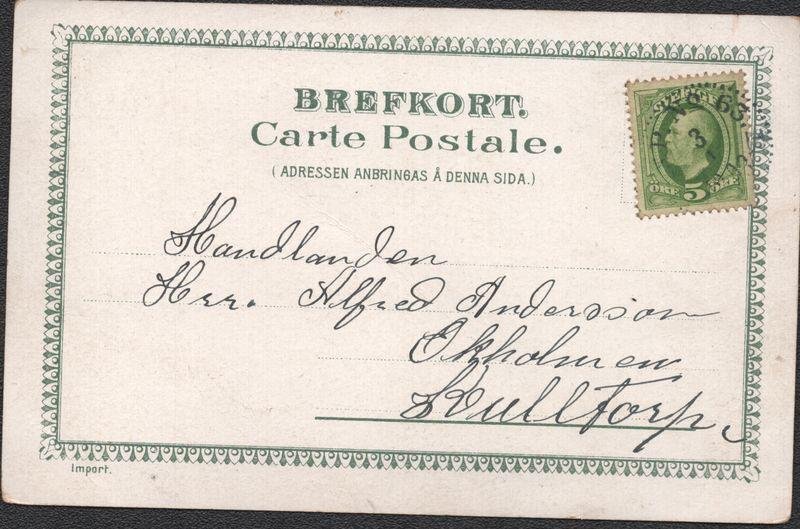 BREFKORT.
Carte Postale.
(ADRESSEN ANBRINGAS Å DENNA SIDA.)
SVERIGE
ÖRE 5 ÖRE
PKXP No 63
3
1
Handlanden
Herr. Alfred Andersson
Ekholmen
Kulltorp.
Import.